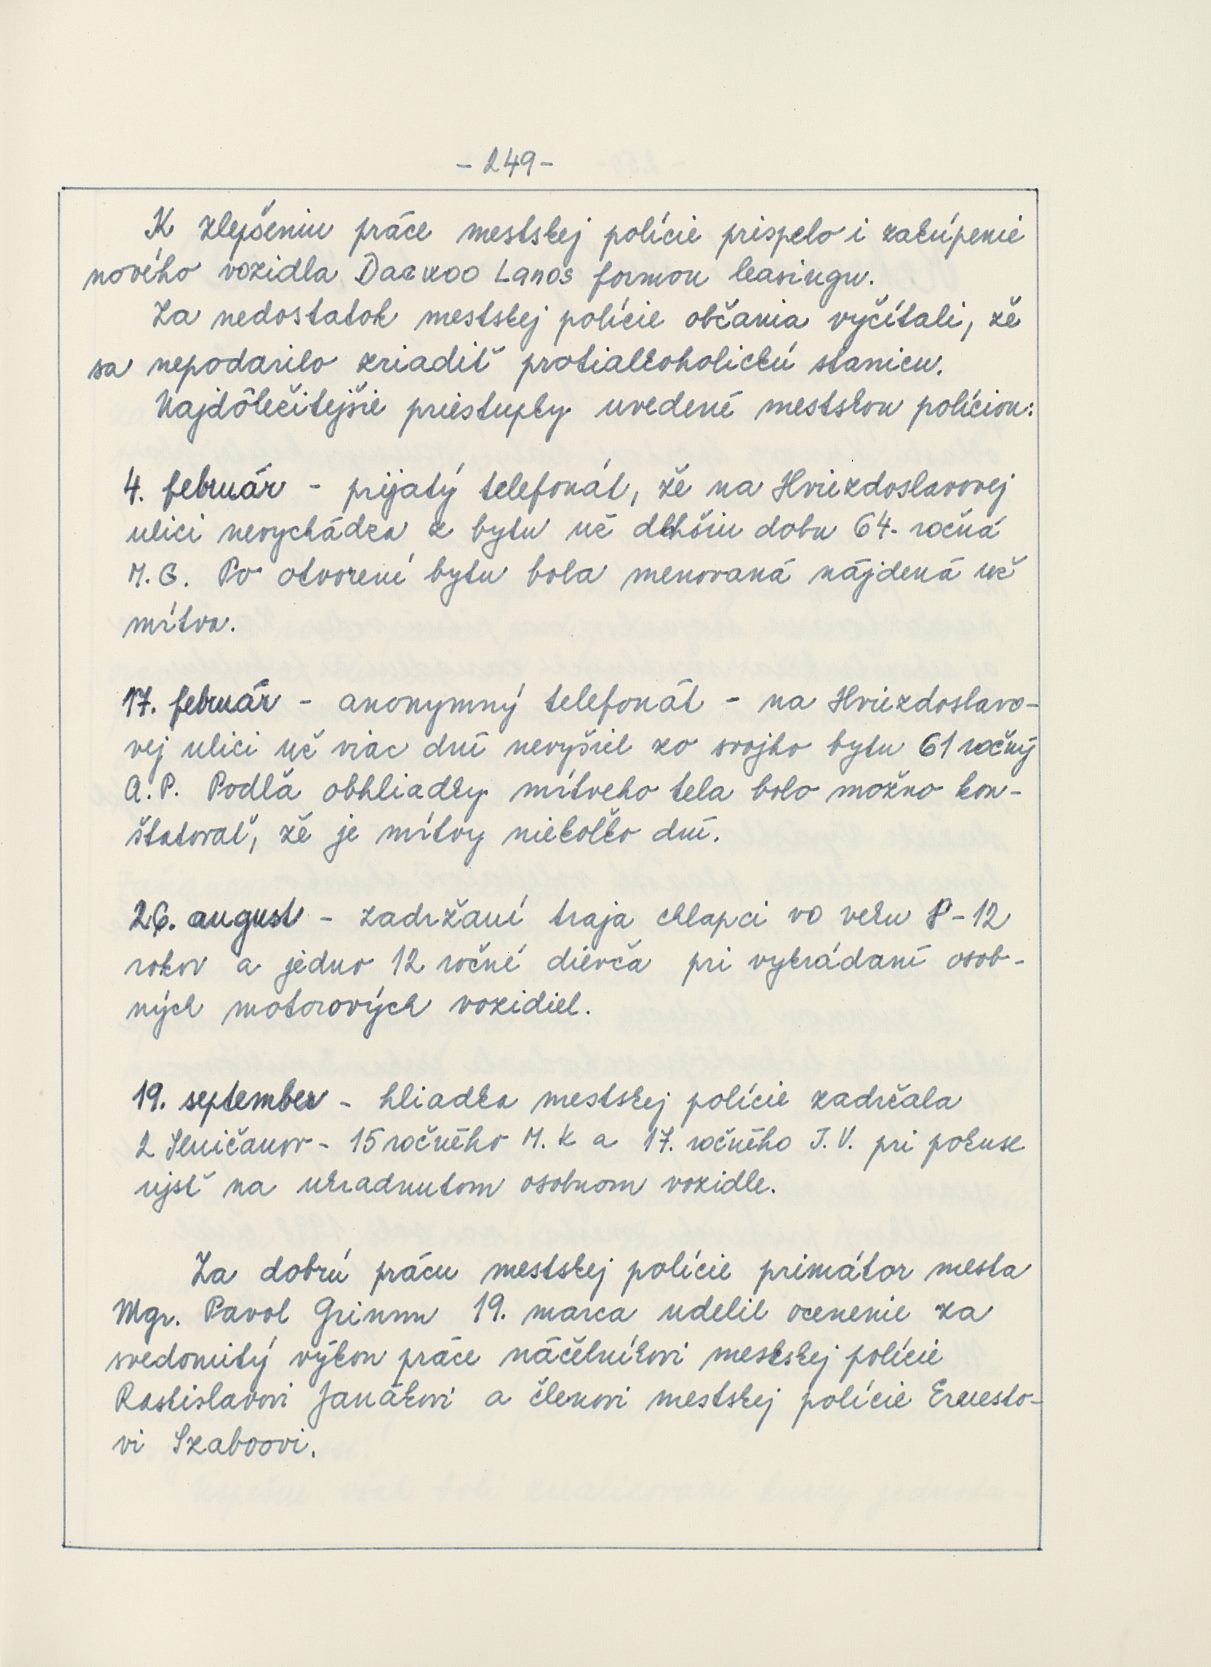 - 249 -
K zlepšeniu práce mestskej polície prispelo i zakúpenie
nového vozidla Daewoo Lanos formou leasingu.
Za nedostatok mestskej polície občania vyčítali, že
sa nepodarilo zriadiť protialkoholickú stanicu.
Najdôležitejšie priestupky uvedené mestskou políciou:
4. február - prijatý telefonát, že na Hviezdoslavovej
ulici nevychádza z bytu už dlhšiu dobu 64-ročná
M.G. Po otvorení bytu bola menovaná nájdená už
mítva.
17. február - anonymný telefonát - na Hviezdoslavo-
vej ulici už viac dní nevyšiel zo svojho bytu 61 ročný
A.P. Podľa obhliadky mítveho tela bolo možno kon-
štatovať, že je mítvy niekoľko dní.
26. august - zadržaní traja chlapci vo veku 8-12
rokov a jedno 12 ročné dievča pri vykrádaní osob-
ných motorových vozidiel.
19. september - hliadka mestskej polície zadržala
2 Seničanov - 15 ročného M.K a 17. ročného J.V. pri pokuse
ujsť na ukradnutom osobnom vozidle.
Za dobrú prácu mestskej polície primátor mesta
Mgr. Pavol Grimm 19. marca udelil ocenenie za
svedomitý výkon práce náčelníkovi mestskej polície
Rastislavovi Janákovi a členovi mestskej polície Ernesto-
vi Szaboovi.